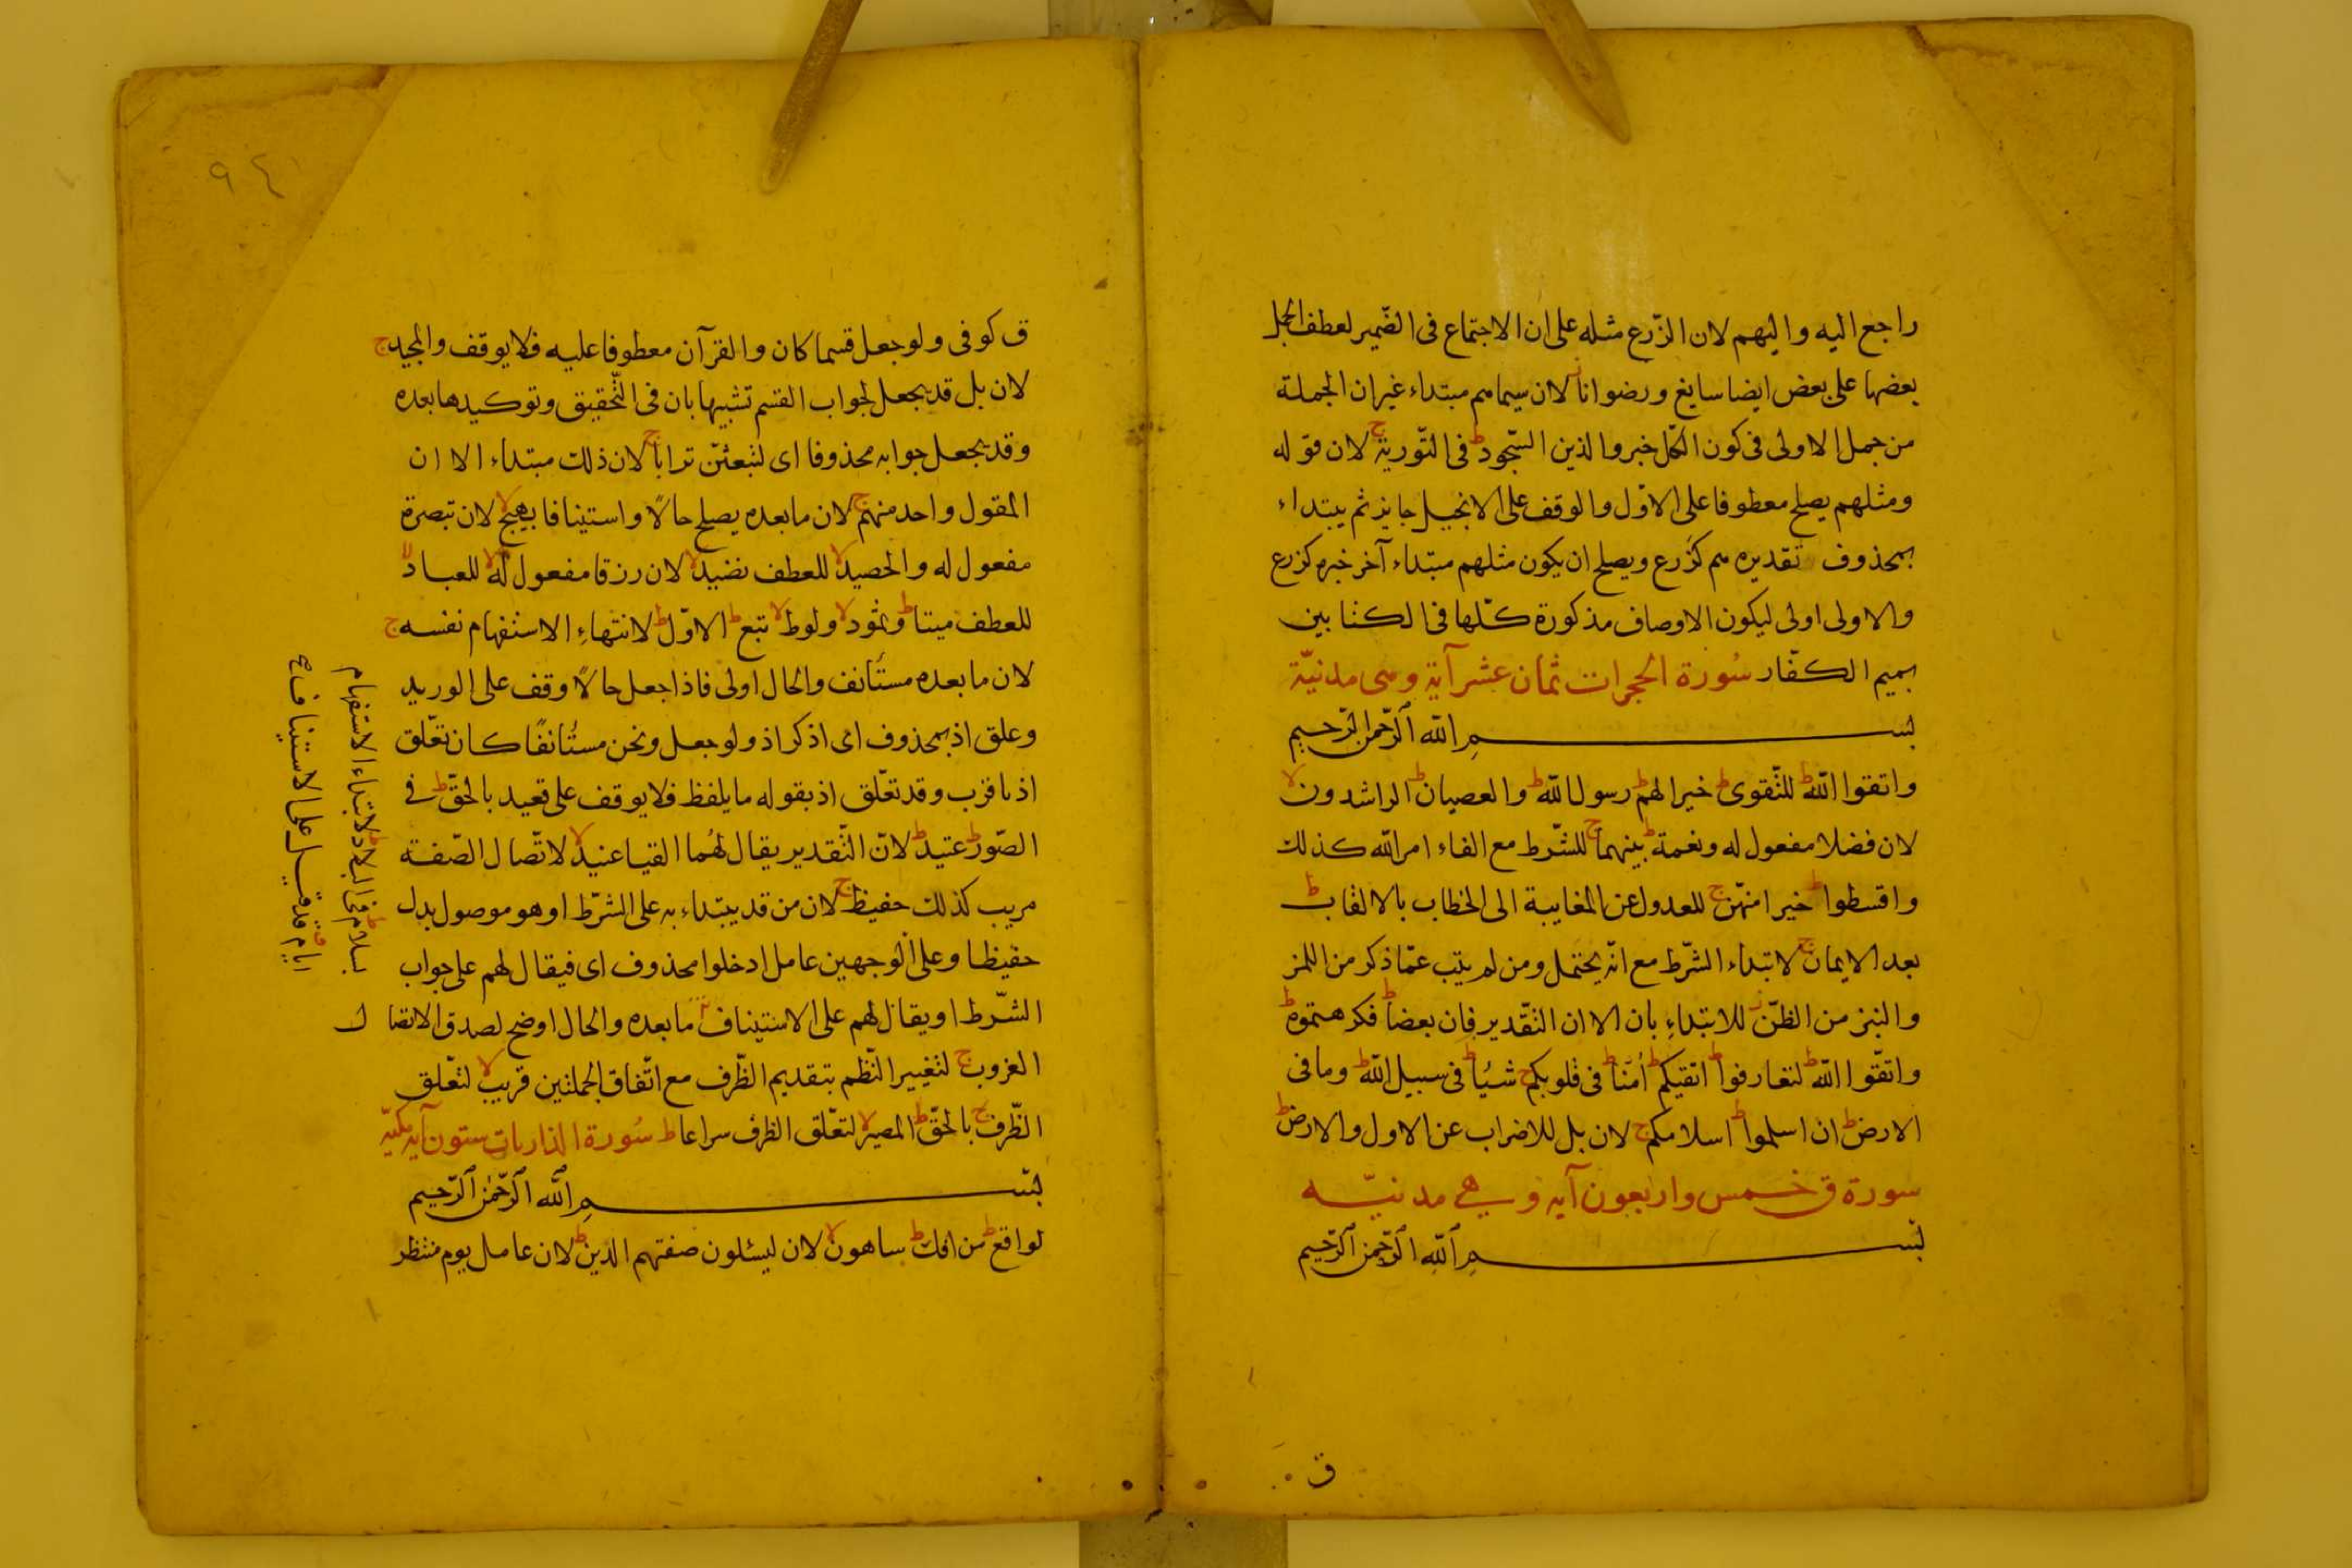 راجع اليه واليهم لان الزّرع مثله على ان الاجتماع فى الضّمير لعطف الجمل
بعضها على بعض ايضا سايغ ورضوانا ز لان سيماهم مبتداء غير ان الجملة
من جمل الاولى فى كون الكّل خبر والذين السّجود ط فى التّورية ج لان قوله
ومثلهم يصلح معطوفا على الاوّل والوقف على الانجيل جايز ثم يبتداء
بمحذوف تقديره هم كزرع ويصلح ان يكون مثلهم مبتداء آخر خبره كزرع
والاولى اولى ليكون الاوصاف مذكورة كلّها فى الكتابين
بهم الكفّار سُورة الحجرات ثمان عشر آية وهى مدنيّة
بســـــم الله الرّحمن الرّحيم
واتقوا الله ط للتّقوى ط خيرا لهم ط رسول الله ط والعصيان ط الراشدون لا
لان فضلا مفعول له ونعمة ط بينهما ج للشّرط مع الفاء امر الله كذلك
واقسطوا ط خيرا منهّن ج للعدول عن المغايبة الى الخطاب بالالقاب ط
بعد الايمان ج لابتداء الشّرط مع انّه يحتمل ومن لم يتب عمّا ذكر من اللمز
والنبز من الظنّ ز للابتداءِ بان الا ان التقّدير فان بعضا ط فكرهتموه ط
واتقّوا الله ط لتعارفوا ط اتقيكم ط اٰمنّا ط فى قلوبكم ج شيئا ط فى سبيل الله ط وما فى
الارض ط ان اسلموا ط اسلامكم ج لان بل للاضراب عن الاول والارض ط
سورة ق خمس واربعون آيه وهي مدنيّه
بســـــم الله الرّحمن الرّحيم
ق
٩٤
ق كوفى ولو جعل قسما كان والقرآن معطوفا عليه فلا يوقف والمجيد ج
لان بل قد يجعل لجواب القسم تشبيها بان فى التّحقيق وتوكيدها بعده
وقد يجعل جوابه محذوفا اى لتبعثنّ ترابا ج لان ذلك مبتداء الا ان
المقول واحد منهم ج لان ما بعده يصلح حالًا واستينافا بهيج لا لان تبصرة
مفعول له والحصيد لا للعطف نضيد لا لان رزقا مفعول له لا للعباد لا
للعطف ميتا ط وثمود لا ولوط لا تبع ط الاوّل ط لانتهاءِ الاستفهام نفسه ج
لان ما بعده مستأنف والحال اولى فاذا جعل حالًا وقف على الوريد
وعلق اذ بمحذوف اى اذكر اذ ولو جعل ونحن مستُانفًا كان تعّلق
اذ باقرب وقد تعّلق اذ بقوله ما يلفظ فلا يوقف على قعيد بالحقّ ط فى
الصّور ط عتيد ط لانّ التّقدير يقال لهُما القيا عنيد لا لاتّصال الصّفة
مريب كذلك حفيظ ج لان من قد يبتداء به على الشرّط او هو موصول بدل
حفيظا وعلى الوجهين عامل ادخلوا محذوف اى فيقال لهم على جواب
الشّرط او يقال لهم على الاستيناف ما بعده والحال اوضح لصدق الاتصال
الغروب ج لتغيير النّظم بتقديم الظّرف مع اتّفاق الجملتين قريب لا لتعّلق
الظّرف ج بالحقّ ط المصير لا لتعّلق الظرف سراعا ط سُورة الذاريات ستون آيه مكيّه
بســـــم الله الرّحمن الرّحيم
لواقع ط من افك ط ساهون لا لان ليسئلون صفتهم الدّين ط لان عامل يوم منتظر
بسلام ط فى البلاد ط لابتداء الاستفهام
ايام قد قيل على الاستيناف ح